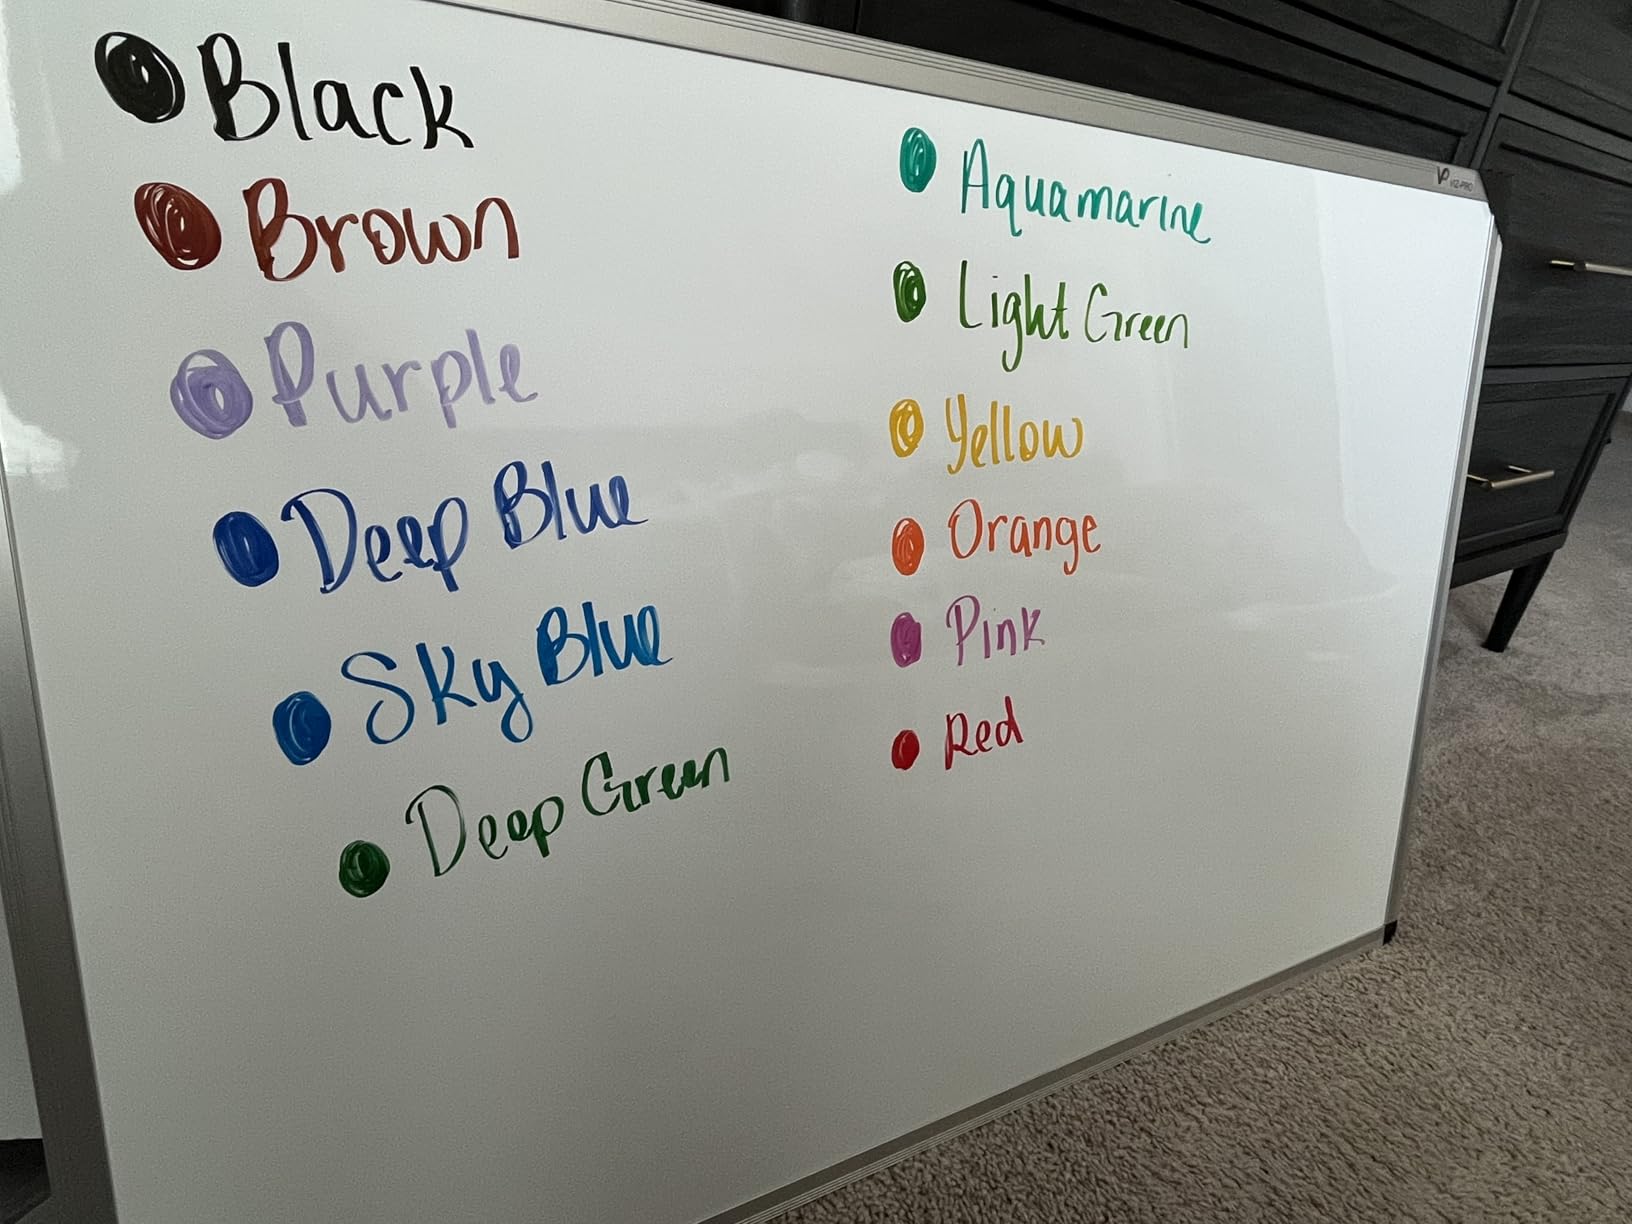 Black
Brown
Purple
Deep Blue
Sky Blue
Deep Green
Aquamarine
Light Green
Yellow
Orange
Pink
Red
VIZ-PRO